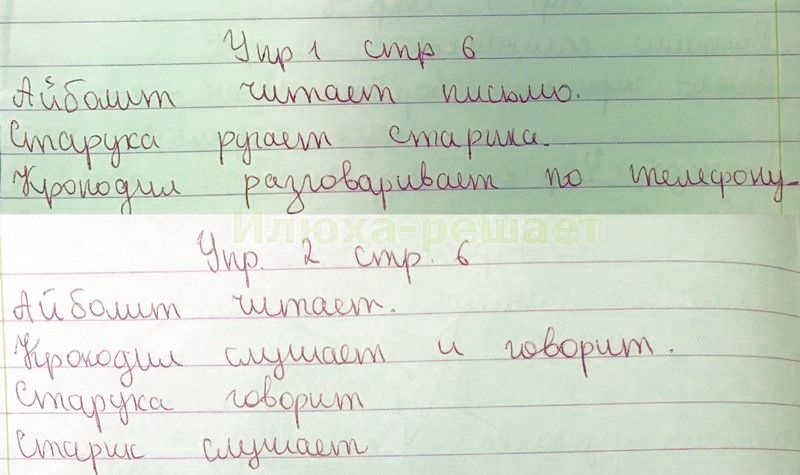 Упр 1 стр 6
Айболит читает письмо.
Старуха ругает старика.
Крокодил разговаривает по телефону
Илюха-решает
Упр. 2 стр. 6
Айболит читает.
Крокодил слушает и говорит.
Старуха говорит
Старик слушает